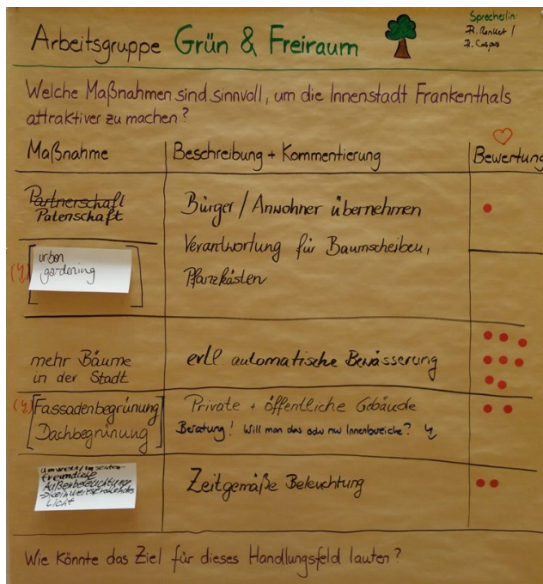 Arbeitsgruppe Grün & Freiraum
Sprecherin
Welche Maßnahmen sind sinnvoll, um die Innenstadt Frankenthals
attraktiver zu machen?
Maßnahme
Beschreibung + Kommentierung
Bewertung
Partnerschaft
Patenschaft
Bürger / Anwohner übernehmen
Verantwortung für Baumscheiben,
Pflanzkästen
urban
gardening
mehr Bäume
in der Stadt
evtl automatische Bewässerung
Fassadenbegrünung
Dachbegrünung
Private + öffentliche Gebäude
Beratung! Will man das oder nur Innenbereiche?
freundliche
Außenbeleuchtung
Licht
Zeitgemäße Beleuchtung
Wie könnte das Ziel für dieses Handlungsfeld lauten?